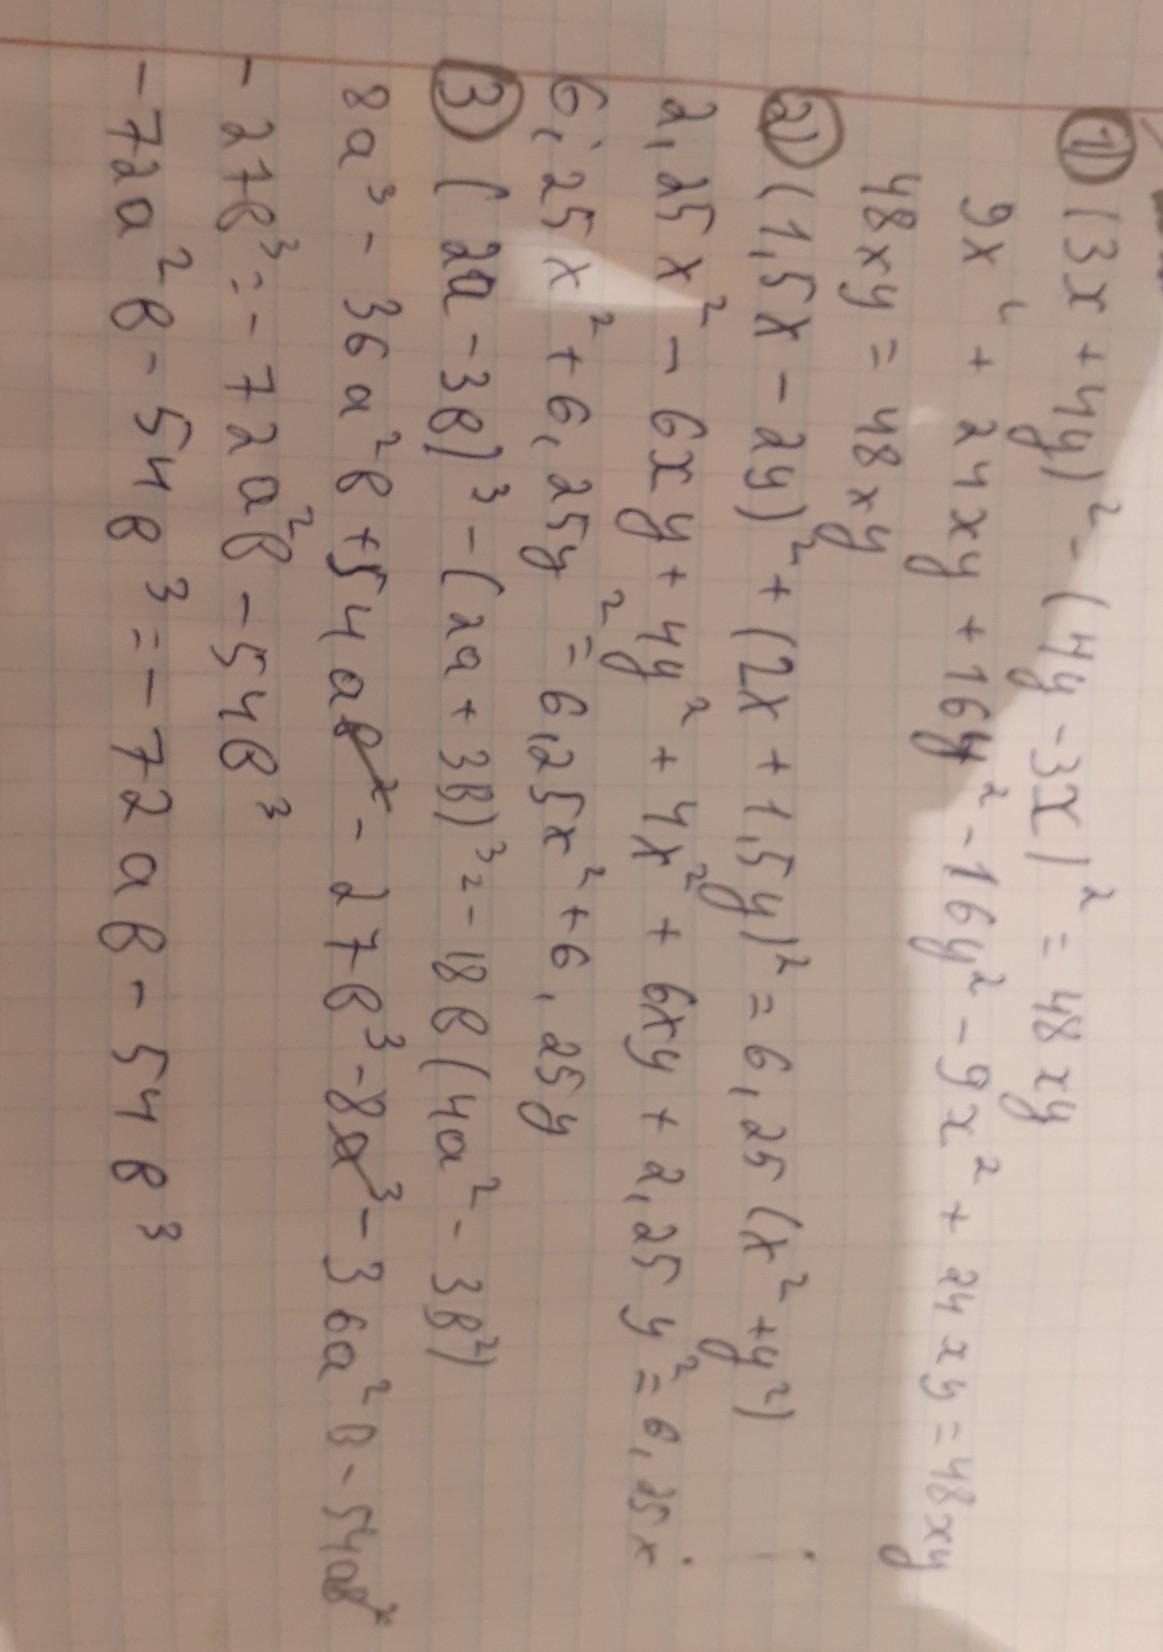 1) (3x + 4y)² - (4y - 3x)² = 48xy
9x² + 24xy + 16y² - 16y² - 9x² + 24xy = 48xy
48xy = 48xy
2) (1,5x - 2y)² + (2x + 1,5y)² = 6,25(x² + y²)
2,25x² - 6xy + 4y² + 4x² + 6xy + 2,25y² = 6,25x
6,25x² + 6,25y² = 6,25x² + 6,25y
3) (2a - 3в)³ - (2a + 3в)³ = -18в(4a² - 3в²)
8a³ - 36a²в + 54aв² - 27в³ - 8a³ - 36a²в - 54aв²
- 27в³ = -72a²в - 54в³
-72a²в - 54в³ = -72aв - 54в³